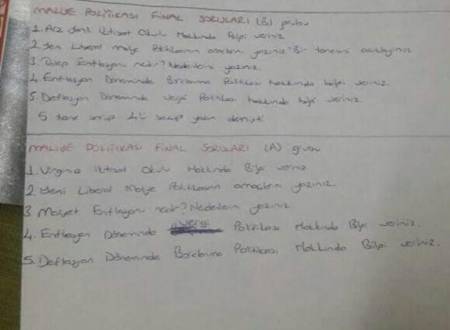 MALİYE POLİTİKASI FİNAL SORULARI (B) grubu
1. Arz yanlı İktisat Okulu Hakkında Bilgi veriniz
2. Yeni Liberal maliye Politikasının amaçlarını yazınız Bir tanesini açıklayınız.
3. Talep Enflasyonu nedir? Nedenlerini yazınız.
4. Enflasyon Döneminde Borçlanma Politikası hakkında bilgi veriniz.
5. Deflasyon Döneminde vergi Politikası hakkında bilgi veriniz.
5 tane sorup 4'ü yapın demişti
MALİYE POLİTİKASI FİNAL SORULARI (A) grubu
1. Virginia İktisat Okulu Hakkında Bilgi veriniz
2. Yeni Liberal Maliye Politikasının amaçlarını yazınız.
3. Maliyet Enflasyonu nedir? Nedenlerini yazınız.
4. Enflasyon Döneminde vergi Politikası Hakkında Bilgi veriniz.
5. Deflasyon Döneminde Borçlanma Politikası Hakkında Bilgi veriniz.